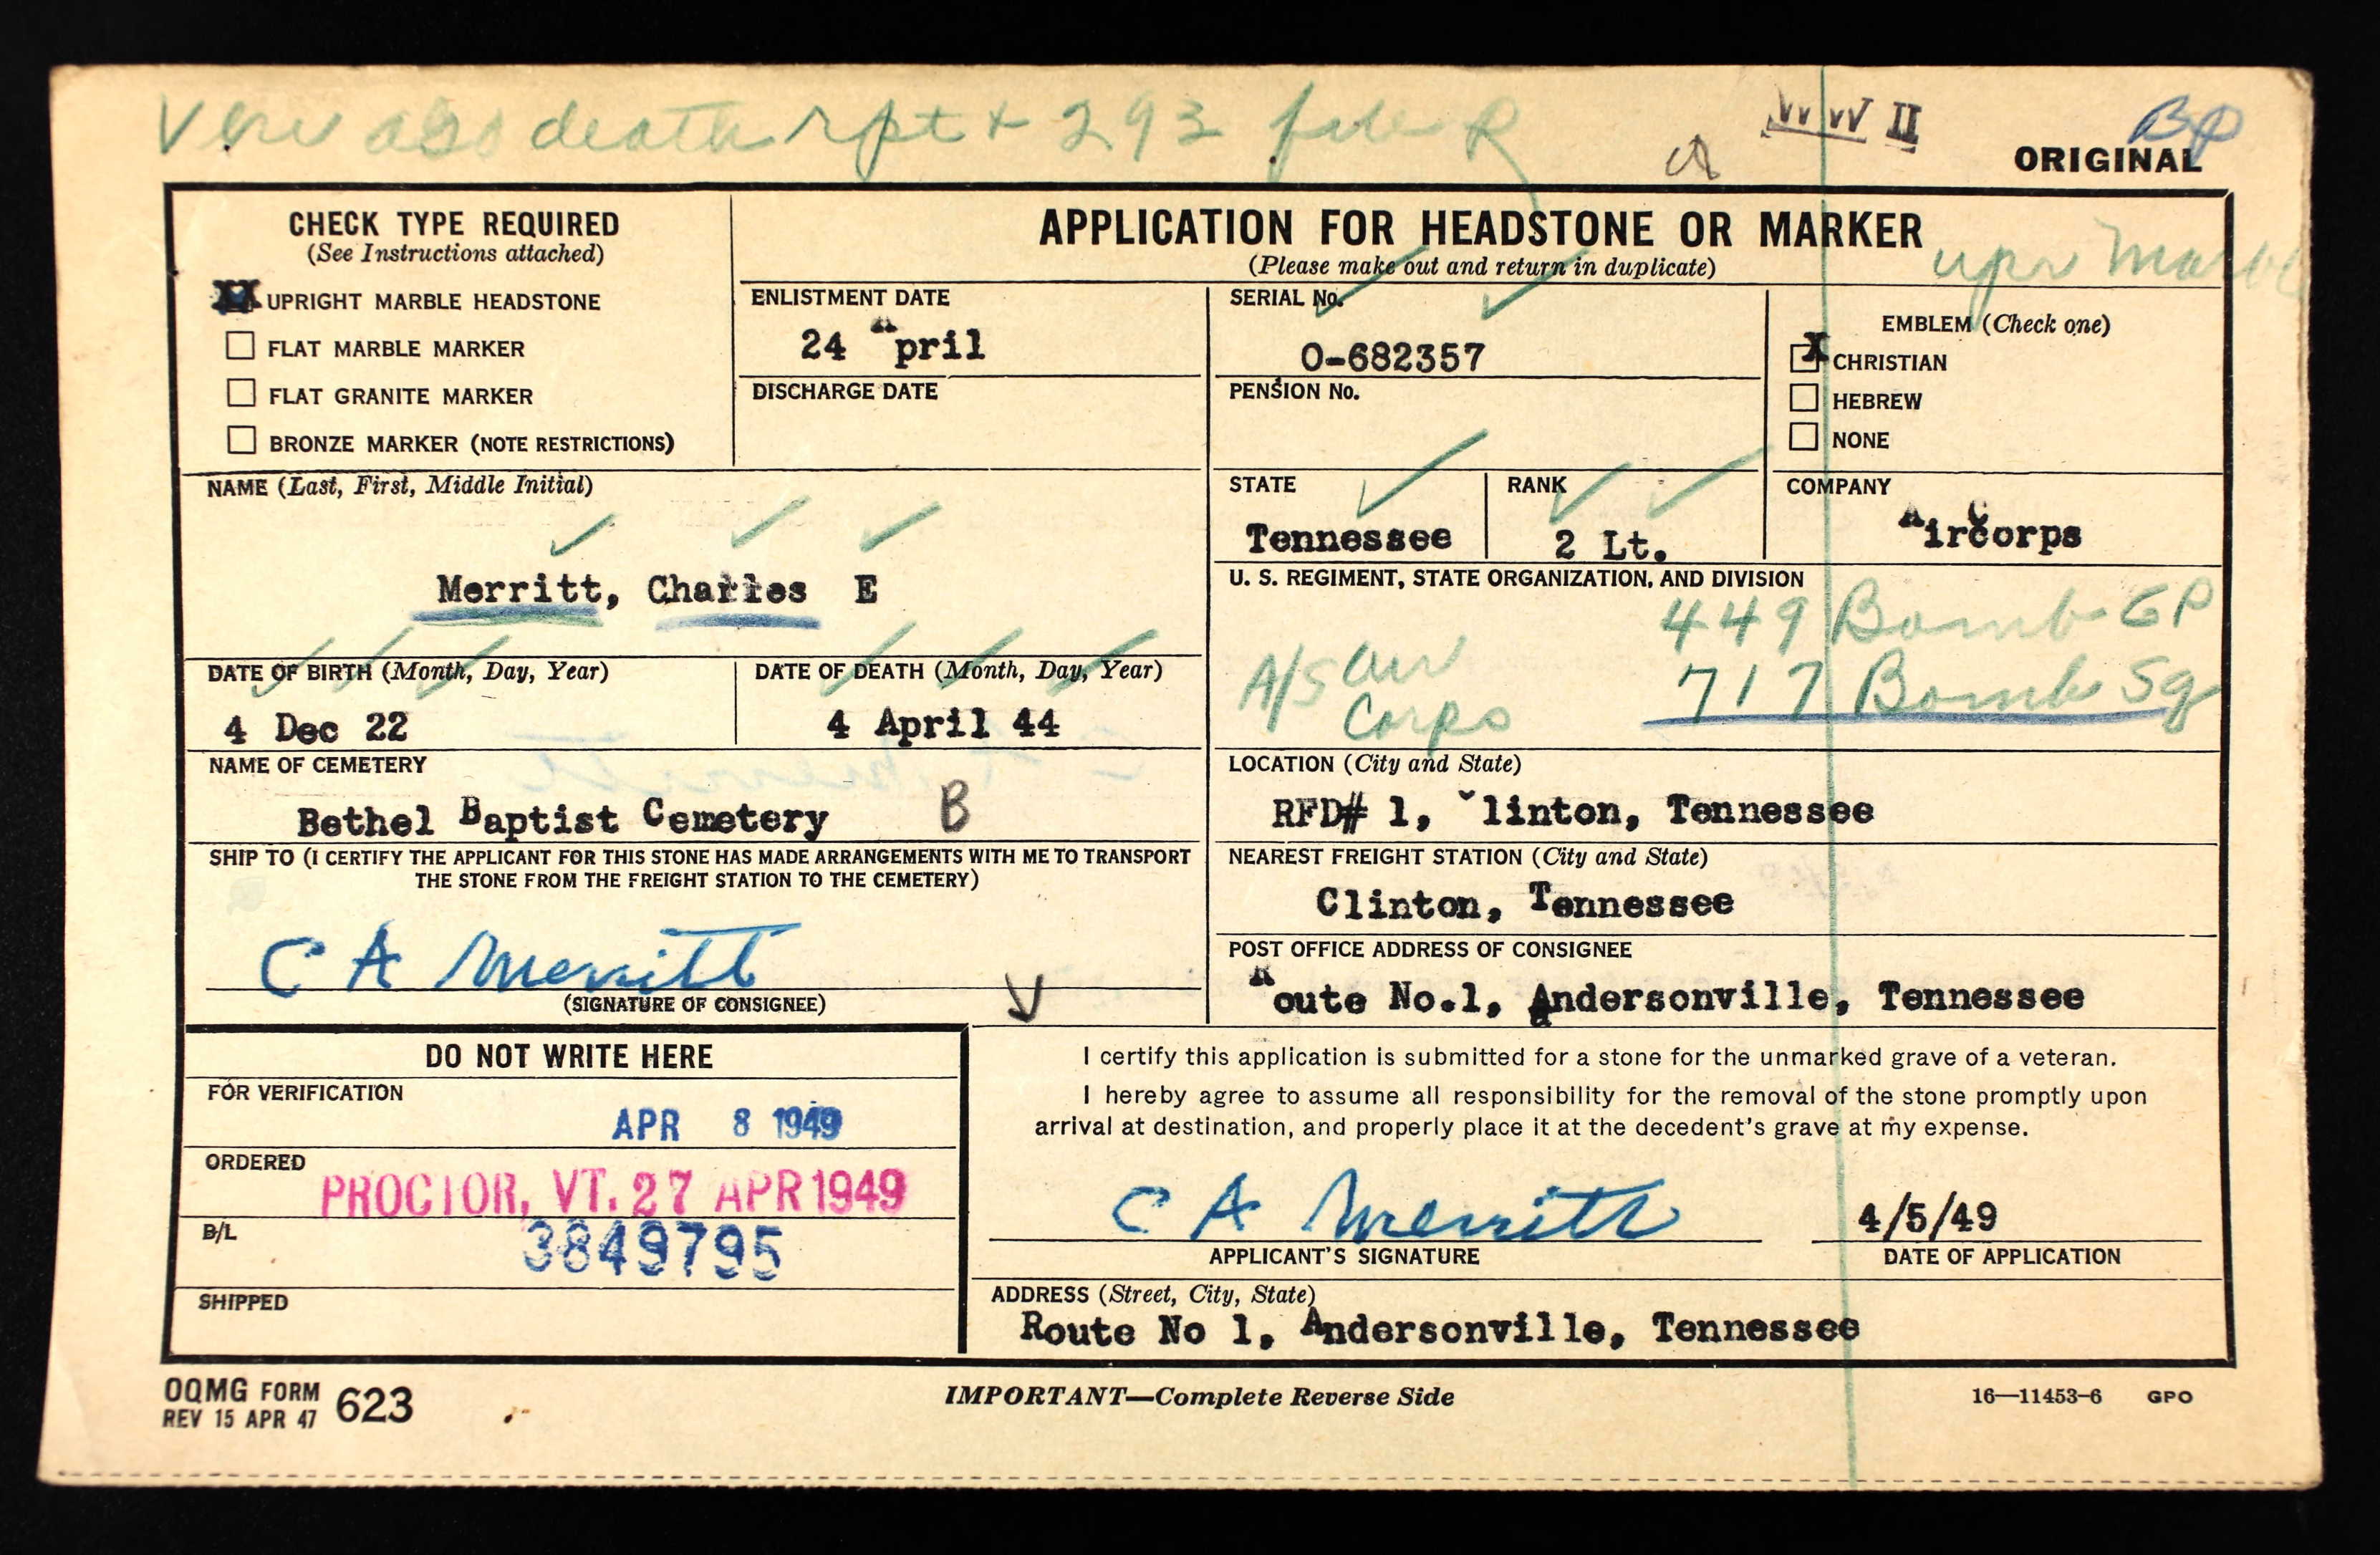 Veri ago death rpt + 293 file R
WW II
BP
ORIGINAL
CHECK TYPE REQUIRED
(See Instructions attached)
X UPRIGHT MARBLE HEADSTONE
FLAT MARBLE MARKER
FLAT GRANITE MARKER
BRONZE MARKER (NOTE RESTRICTIONS)
APPLICATION FOR HEADSTONE OR MARKER
(Please make out and return in duplicate)
upr Marble
ENLISTMENT DATE
24 April
DISCHARGE DATE
SERIAL No.
O-682357
PENSION No.
EMBLEM (Check one)
X CHRISTIAN
HEBREW
NONE
NAME (Last, First, Middle Initial)
Merritt, Charles E
STATE
Tennessee
RANK
2 Lt.
COMPANY
AirCorps
U. S. REGIMENT, STATE ORGANIZATION, AND DIVISION
449 Bomb GP
A/S Air Corps
717 Bomb Sq
DATE OF BIRTH (Month, Day, Year)
4 Dec 22
DATE OF DEATH (Month, Day, Year)
4 April 44
NAME OF CEMETERY
Bethel Baptist Cemetery B
LOCATION (City and State)
RFD# 1, Clinton, Tennessee
SHIP TO (I CERTIFY THE APPLICANT FOR THIS STONE HAS MADE ARRANGEMENTS WITH ME TO TRANSPORT
THE STONE FROM THE FREIGHT STATION TO THE CEMETERY)
C A Merritt
(SIGNATURE OF CONSIGNEE)
NEAREST FREIGHT STATION (City and State)
Clinton, Tennessee
POST OFFICE ADDRESS OF CONSIGNEE
Route No.1, Andersonville, Tennessee
DO NOT WRITE HERE
FOR VERIFICATION
APR 8 1949
ORDERED
PROCTOR, VT. 27 APR 1949
B/L
3849795
SHIPPED
I certify this application is submitted for a stone for the unmarked grave of a veteran.
I hereby agree to assume all responsibility for the removal of the stone promptly upon
arrival at destination, and properly place it at the decedent's grave at my expense.
C A Merritt
4/5/49
APPLICANT'S SIGNATURE
DATE OF APPLICATION
ADDRESS (Street, City, State)
Route No 1, Andersonville, Tennessee
OQMG FORM 623
REV 15 APR 47
IMPORTANT—Complete Reverse Side
16—11453-6 GPO